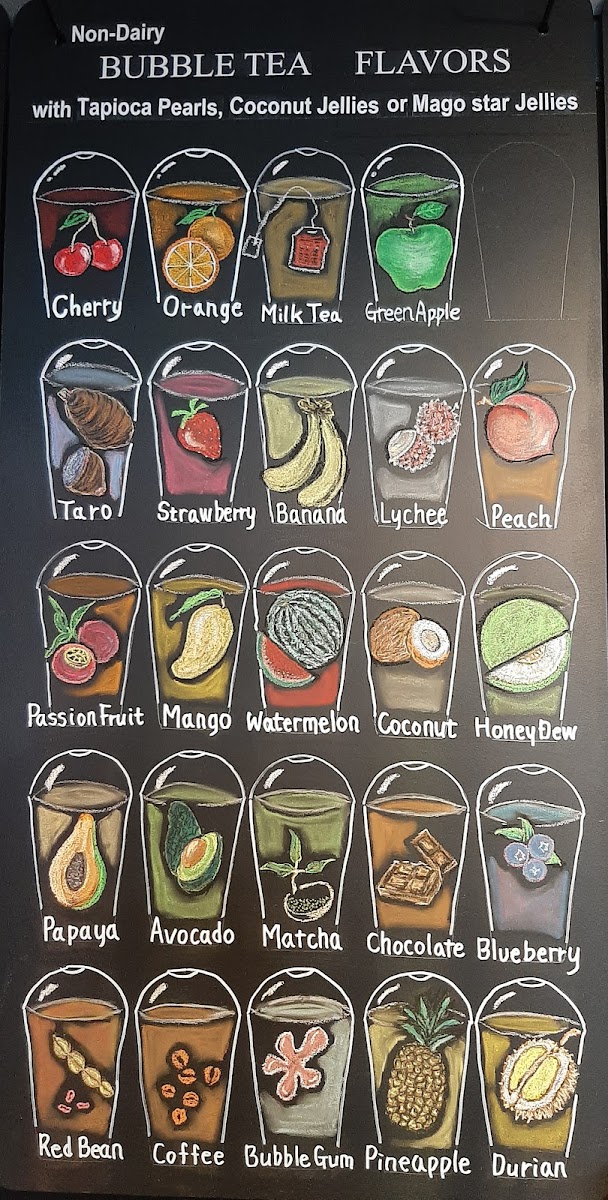 Non-Dairy
BUBBLE TEA FLAVORS
with Tapioca Pearls, Coconut Jellies or Mago star Jellies
Cherry Orange Milk Tea Green Apple
Taro Strawberry Banana Lychee Peach
Passion Fruit Mango Watermelon Coconut Honey Dew
Papaya Avocado Matcha Chocolate Blueberry
Red Bean Coffee Bubble Gum Pineapple Durian